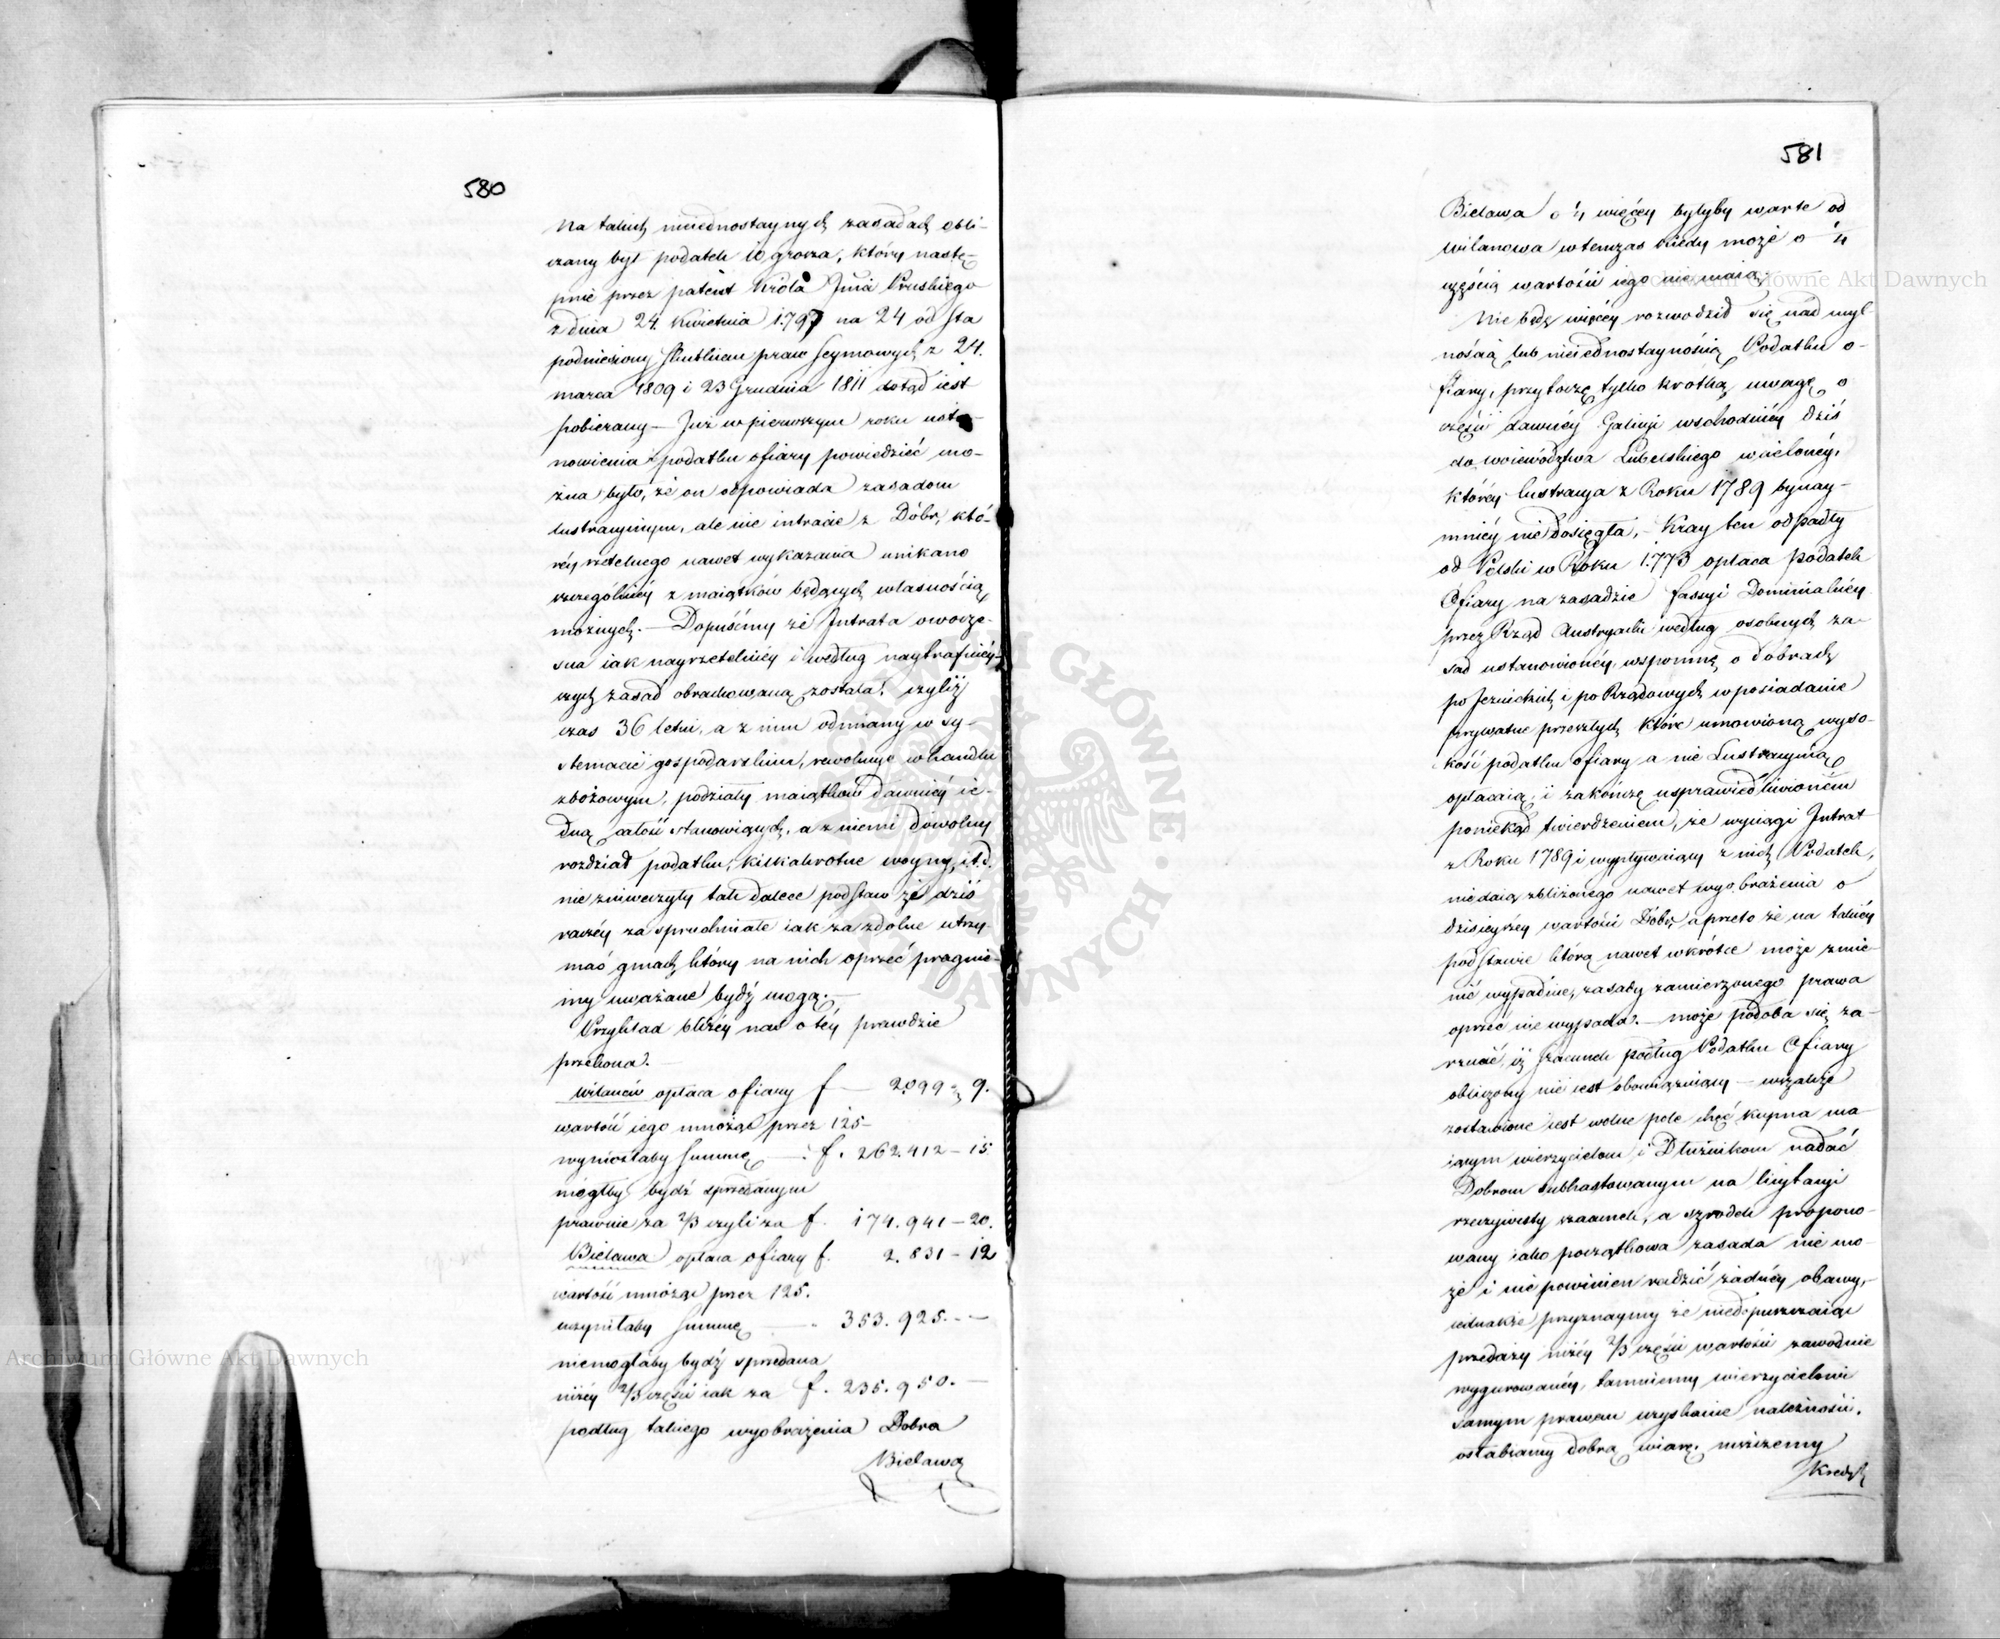 580
Na takich nieiednostaynych zasadach obli-
czany był podatek 10 grosza, który nastę-
pnie przez patent Króla Jmci Pruskiego
z dnia 24. Kwietnia 1.797 na 24 od sta
podniesiony skutkiem praw Seymowych z 24.
marca 1809 i 23 Grudnia 1811 dotąd iest
pobierany — Już w pierwszym roku usta-
nowienia podatku ofiary powiedzieć mo-
żna było, że on odpowiada zasadom
lustracyinym, ale nie intracie z Dóbr, któ-
réy rzetelnego nawet wykazania unikano
szczególniéy z maiątków będących własnością
możnych. — Dopuśćmy że Intrata owocze-
sna iak nayrzetelniéy i według naytrafniéy-
szych zasad obrachowaną została, czyliż
czas 36 letni, a z nim odmiany w sy-
stemacie gospodarskim, rewolucye w handlu
zbożowym, podziały maiątków dawniéy ie-
dną całość stanowiących, a z niemi dowolny
rozdział podatku, kilkakrotne woyny, i t. d.
nie zniweczyły tak dalece podstaw że dziś
raczéy za spruchniałe iak za zdolne utrzy-
mać gmach który na nich oprzeć pragnie-
my uważane bydź mogą. —
Przykład bliżéy nas o téy prawdzie
przekona. —
Wilanów opłaca ofiary f — 2099 " 9.
wartość iego mnożąc przez 125 —
wyniosłaby Summę — : f. 262.412 — 15
mógłby bydź sprzedanym
prawnie za 2/3 czyli za f. 174.941 — 20.
Bielawa opłaca ofiary f. 2.831 — 12
wartość mnożąc przez 125.
uczyniłaby Summę — " 353.925. — —
niemogłaby bydź sprzedana
niżéy 2/3 części iak za f. 235.950. —
podług takiego wyobrażenia Dobra
Bielawa
581
Bielawa o 1/4 więcéy byłyby warte od
Wilanowa wtenczas kiedy może o 1/4
częścią wartości iego nie maią.
Nie będę więcéy rozwodził się nad myl-
nością lub nieiednostaynością Podatku o-
fiary, przytoczę tylko krótką uwagę o
części dawnéy Galicyi wschodniéy dziś
do Woiewództwa Lubelskiego wcielonéy,
któréy lustracya z Roku 1789 bynay-
mniéy nie dosięgła, — Kray ten odpadły
od Polski w Roku 1.773 opłaca podatek
Ofiary na zasadzie fassyi Dominialnéy
przez Rząd Austryacki według osobnych za-
sad ustanowionéy, wspomnę o dobrach
po Jezuickich i po Rządowych w posiadanie
prywatne przeszłych które umowioną wyso-
kość podatku ofiary a nie Lustracyiną
opłacaią, i zakończę usprawiedliwioném
poniekąd twierdzeniem, że wyciągi Intrat
z Roku 1789 i wypływaiący z nich Podatek,
nie daią zbliżonego nawet wyobrażenia o
dzisieyszéy wartości Dóbr, a przeto że na takiéy
podstawie którą nawet wkrótce może zmie-
nić wypadnie, zasady zamierzonego prawa
oprzeć nie wypada. — może podoba się za-
rzucić iż szacunek podług Podatku Ofiary
obliczony nie iest obowiązuiący — wszakże
zostawione iest wolne pole chęć kupna ma-
iącym wierzycielom i Dłużnikom nadać
Dobrom subhastowanym na licytacyi
rzeczywisty szacunek, a szrodek propono-
wany iako początkowa zasada nie mo-
że i nie powinien radzić żadnéy obawy, —
iednakże przyznaymy że niedopuszczaiąc
przedaży niżéy 2/3 części wartości zawodnie
wygurowanéy, tamuiemy wierzycielowi
samym prawem uzyskanie należności,
osłabiamy dobrą wiarę, niszczemy
Kredyt